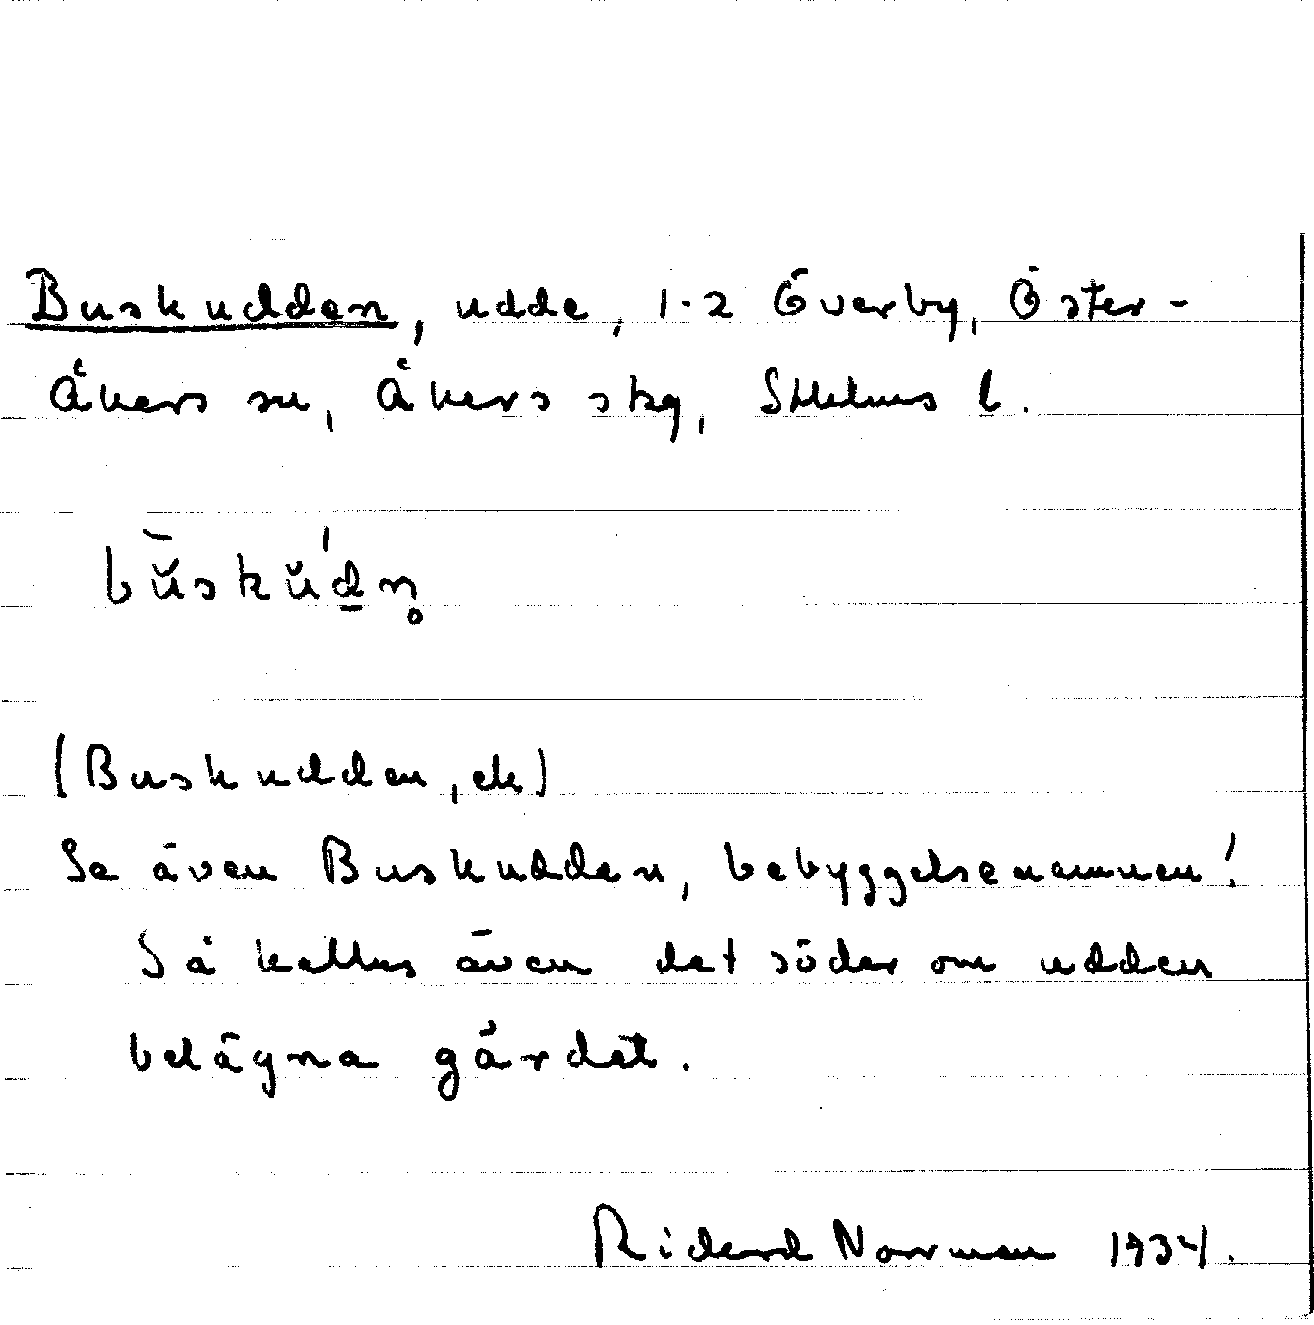 Buskudden, udde, 1-2 Överby, Öster-
Åkers sn, Åkers skg, Sthlms l.
bŭskŭdn̥
(Buskudden, ek)
Se även Buskudden, bebyggelsenamnen!
Så kallas även det söder om udden
belägna gärdet.
Rickard Norrman 1934.